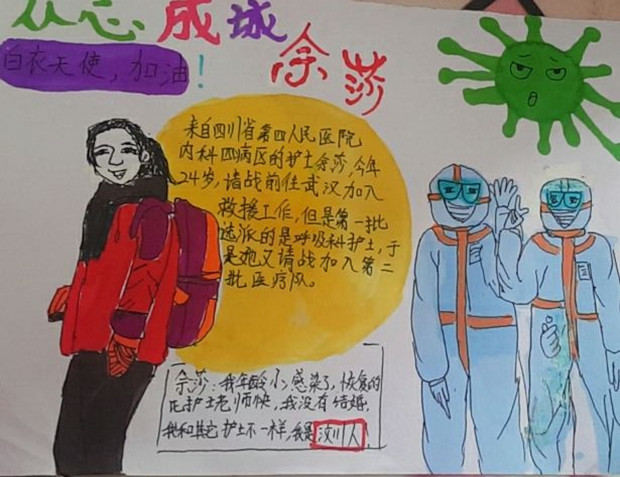 众志成城
白衣天使，加油！
余莎
来自四川省第四人民医院
内科四病区的护士余莎，今年
24岁，请战前往武汉加入
救援工作，但是第一批
选派的是呼吸科护士，于
是她又请战加入第二
批医疗队。
余莎：我年龄小，感染了，恢复的
比护士老师快，我没有结婚，
我和其它护士不一样，我是汶川人